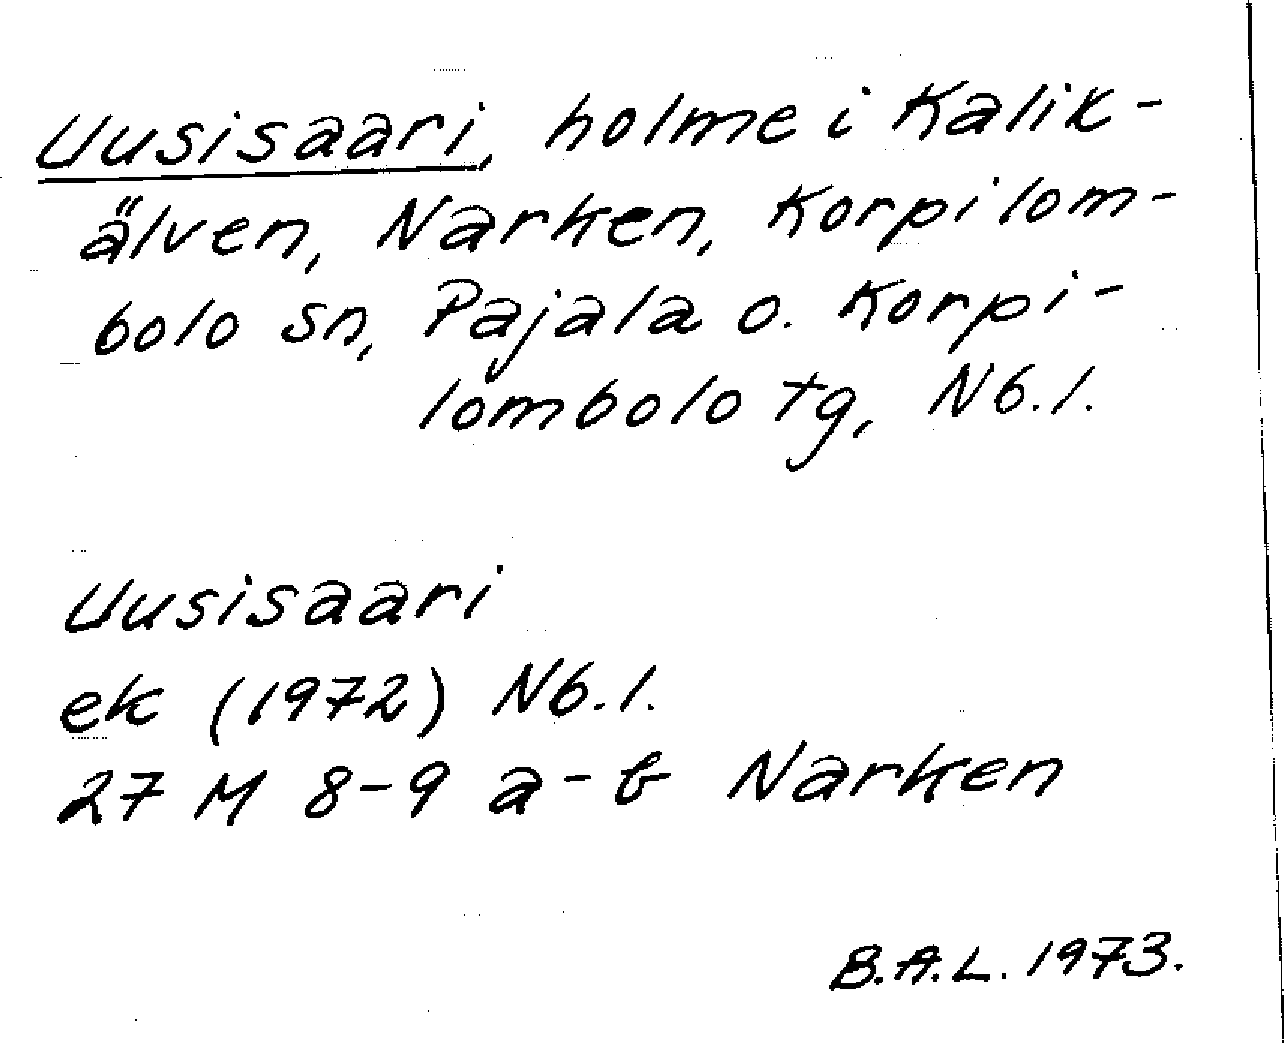 Uusisaari, holme i Kalix-
älven, Narken, Korpilom-
bolo sn, Pajala o. Korpi-
lombolo tg, Nb.l.
Uusisaari
ek (1972) Nb.l.
27 M 8-9 a-b Narken
B.A.L. 1973.